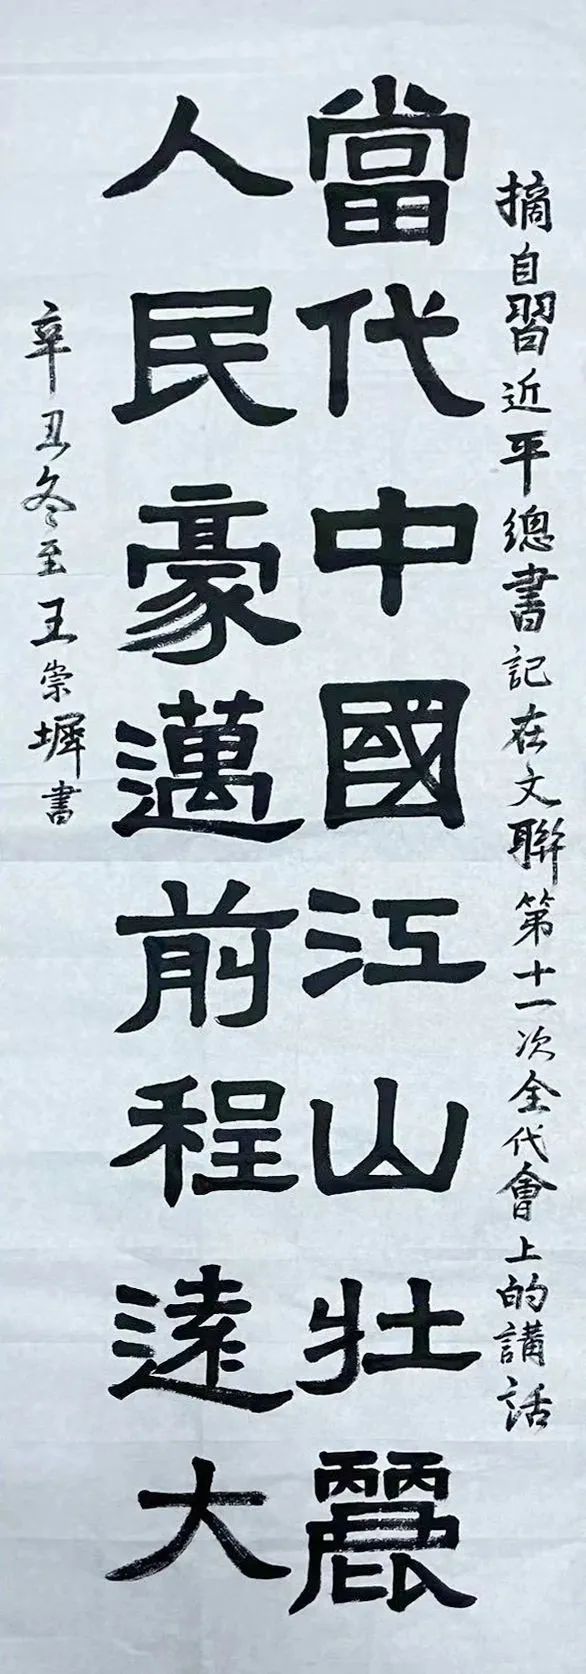 摘自習近平總書記在文聯第十一次全代會上的講話
當代中國江山壯麗
人民豪邁前程遠大
辛丑冬至王崇墀書